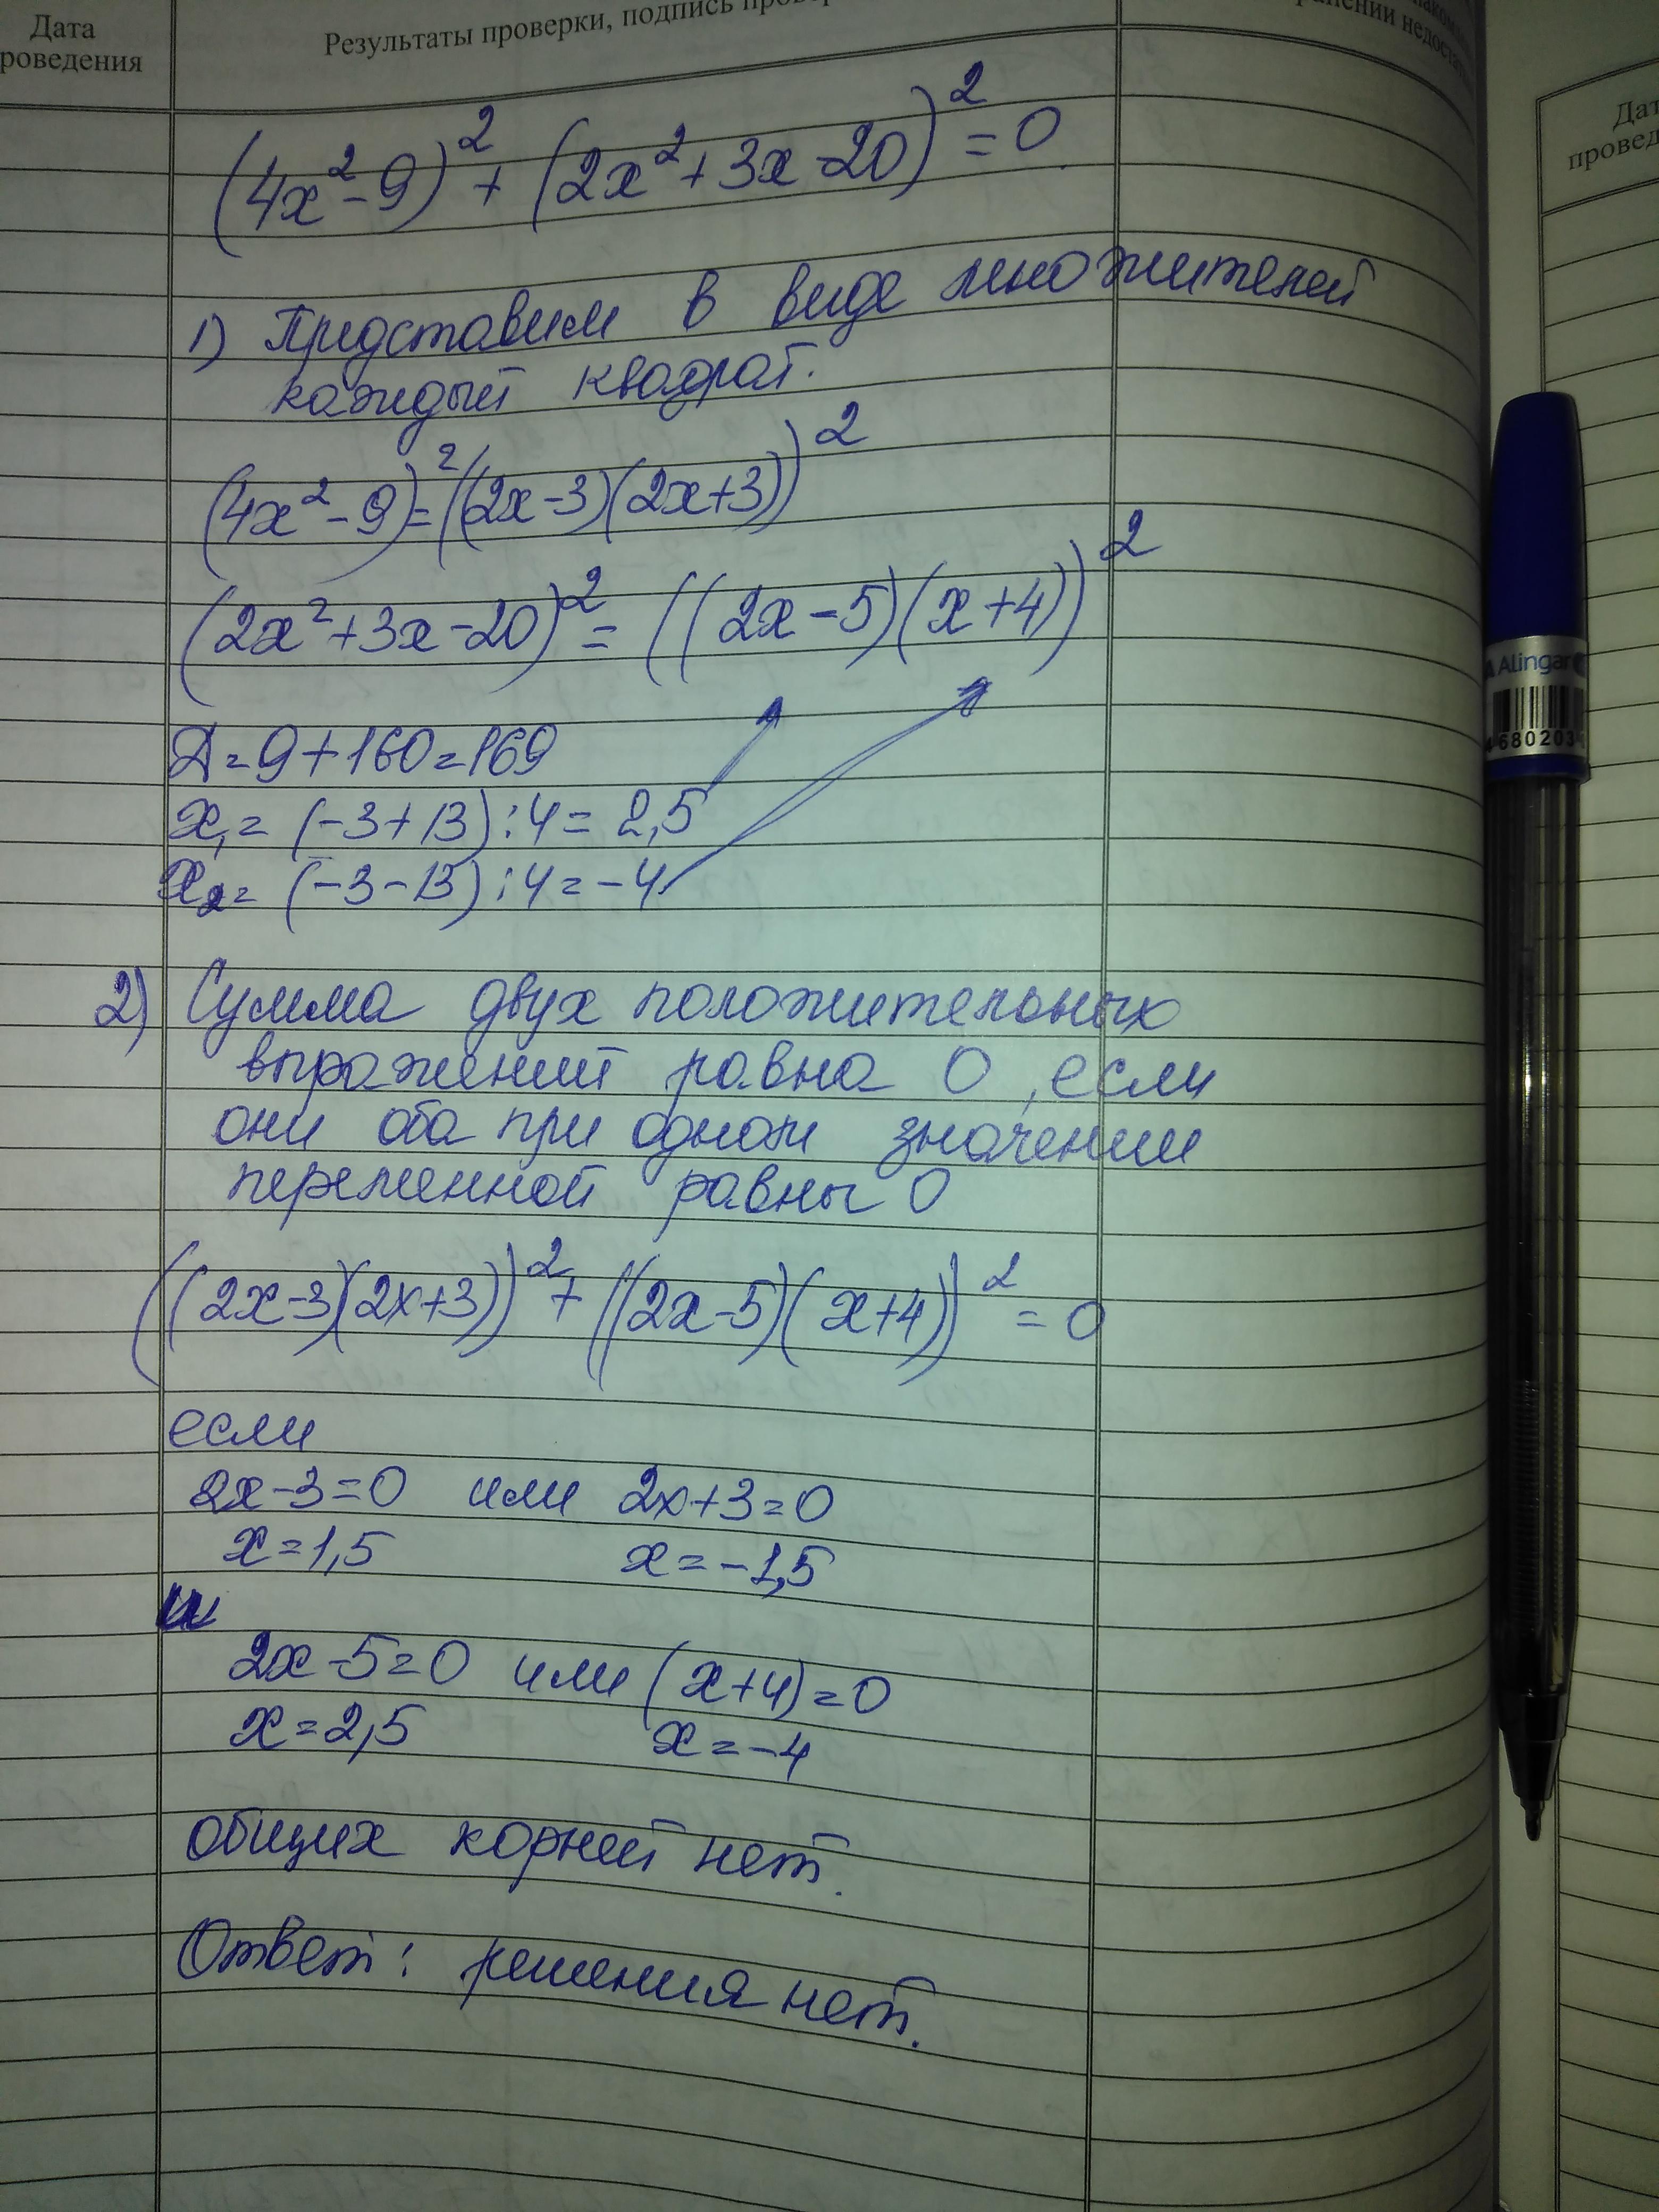 Дата
роведения
Результаты проверки, подпись
Дат
провед
(4x²-9)²+(2x²+3x-20)²=0
1) Представим в виде множителей
каждый квадрат.
(4x²-9)²=((2x-3)(2x+3))²
(2x²+3x-20)²=((2x-5)(x+4))²
Д=9+160=169
x₁=(-3+13):4=2,5
x₂=(-3-13):4=-4
2) Сумма двух положительных
выражений равна 0, если
они оба при одном значении
переменной равны 0
((2x-3)(2x+3))²+((2x-5)(x+4))²=0
если
2x-3=0 или 2x+3=0
x=1,5 x=-1,5
и
2x-5=0 или (x+4)=0
x=2,5 x=-4
общих корней нет.
Ответ: решения нет.
Alingar